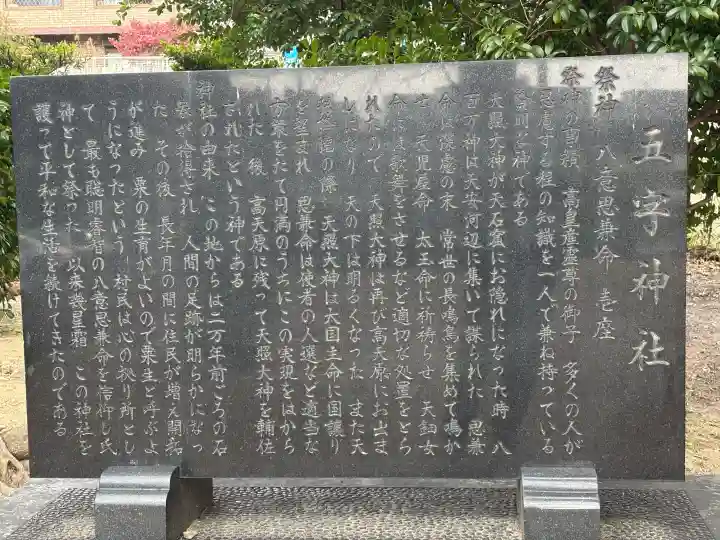 五字神社
祭神 八意思兼命 壱座
祭神の事績 高皇産霊尊の御子 多くの人が
思慮する程の知識を一人で兼ね持っている
聡明な神である
天照大神が天石窟にお隠れになった時 八
百万神は天安河辺に集いて謀られた 思兼
命は深慮の末 常世の長鳴鳥を集めて鳴か
せ 天児屋命 太玉命に祈祷らせ 天鈿女
命には歌舞をさせるなど適切な処置をとら
れたので 天照大神は再び高天原にお出ま
しになり 天の下は明るくなった また天
孫降臨の際 天照大神は大国主命に国譲り
を望まれ 思兼命は使者の人選など適当な
方策をたて円満のうちにこの実現をはから
れた 後 高天原に残って天照大神を輔佐
されたという神である
神社の由来 この地からは二万年前ごろの石
器が拾得され 人間の足跡が明らかになっ
た その後 長年月の間に住民が増え開拓
が進み 粟の生育がよいので粟生と呼ぶよ
うになったという 村民は心の拠り所とし
て 最も聡明叡智の八意思兼命を信仰し氏
神として祭った 以来幾星霜 この神社を
護って平和な生活を続けてきたのである